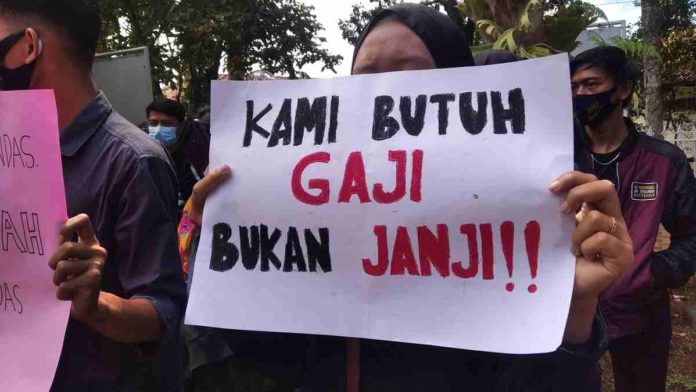 KAMI BUTUH
GAJI
BUKAN JANJI!!
DAS.
AH
DAS